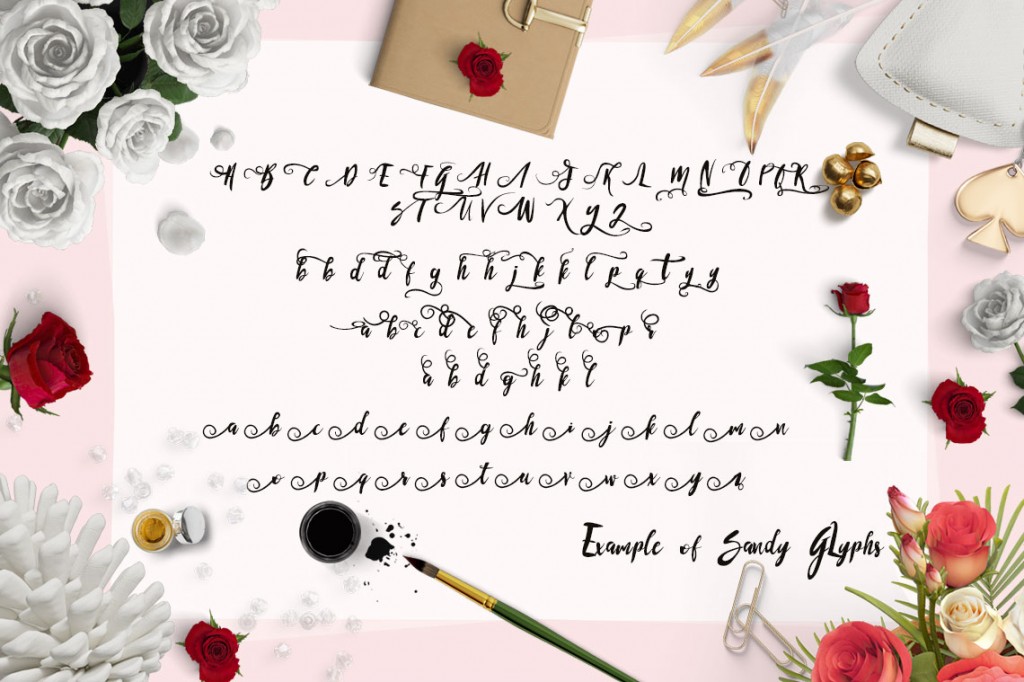 A B C D E F G H I J K L M N O P Q R
S T U V W X Y Z
b b d d f g h h j k k l p q t y y
a b c d e f h j l o p s
a b d g h k l
a b c d e f g h i j k l m n
o p q r s t u v w x y z
Example of Sandy GLyphs